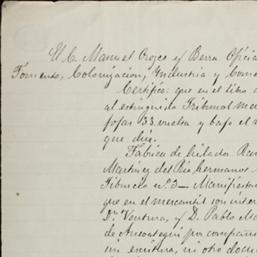 El C. Manuel Orozco y Berra Oficial
Fomento, Colonizacion, Industria y Come
Certifico: que en el libro
al extinguido Tribunal mer
fojas 33 vuelta y bajo el n
que dice.
Fábrica de hilados. Ra
Martinez del Rio hermanos
Tibucio nº 3 — Manifiesta
que en el mercantil con inter
Dn Ventura, y D. Pablo Ma
de Ansoategui por compañía
in escritura, ni otro docu